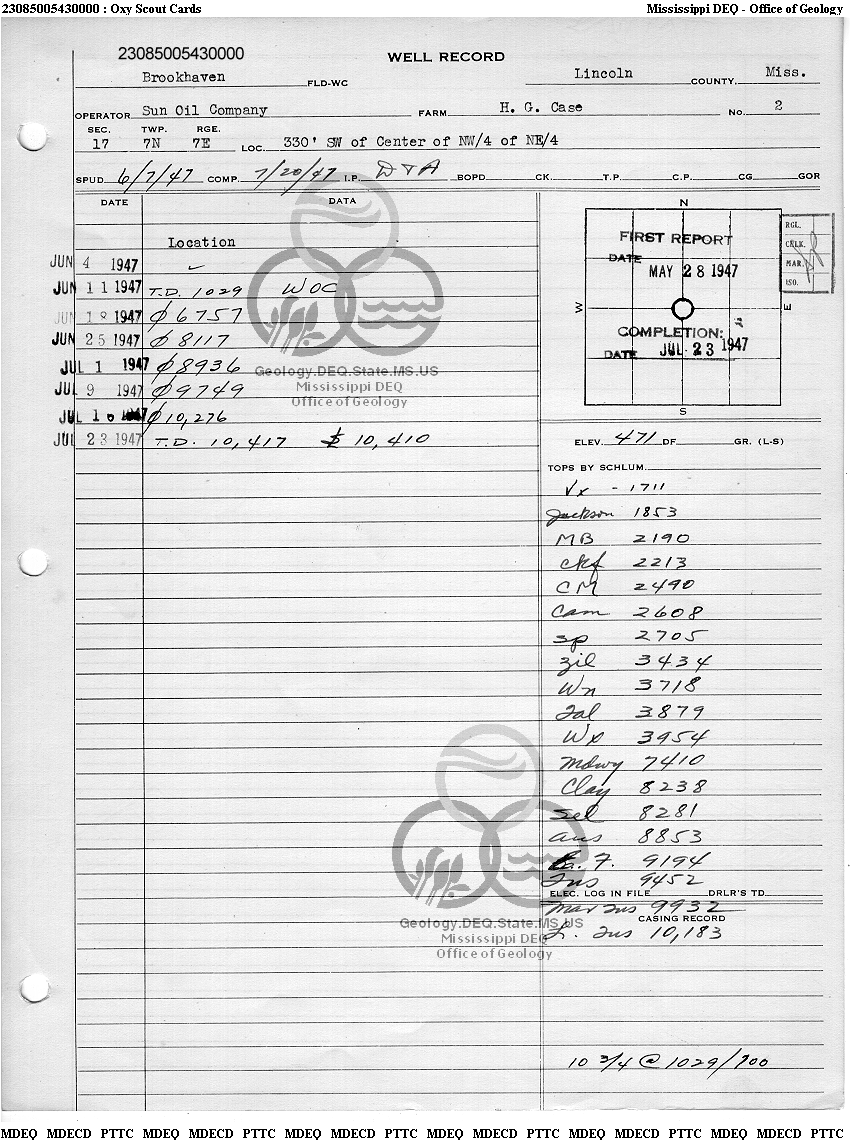 23085005430000 : Oxy Scout Cards Mississippi DEQ - Office of Geology
23085005430000
WELL RECORD
Brookhaven FLD-WC Lincoln COUNTY, Miss.
OPERATOR Sun Oil Company FARM H. G. Case No. 2
SEC. TWP. RGE.
17 7N 7E LOC. 330' SW of Center of NW/4 of NE/4
SPUD 6/7/47 COMP. 7/20/47 I.P. D+A BOPD CK. T.P. C.P. CG GOR
DATE DATA
Location
JUN 4 1947
JUN 11 1947 T.D. 1029 WOC
JUN 18 1947 Ø 6757
JUN 25 1947 Ø 8117
JUL 1 1947 Ø 8936
JUL 9 1947 Ø 9749
JUL 16 1947 Ø 10,276
JUL 23 1947 T.D. 10,417 10,410
Geology.DEQ.State.MS.US
Mississippi DEQ
Office of Geology
N
W
E
S
FIRST REPORT
DATE MAY 28 1947
COMPLETION:
DATE JUL 23 1947
RGL.
CHK.
MAR.
ISO.
ELEV. 471 DF GR. (L-S)
TOPS BY SCHLUM.
Vx - 1711
Jackson 1853
MB 2190
ckf 2213
CM 2490
Cam 2608
sp 2705
zil 3434
Wn 3718
Tal 3879
Wx 3954
Mdwy 7410
Clay 8238
Sel 8281
aus 8853
E. F. 9194
Tus 9452
ELEC. LOG IN FILE DRLR'S TD
Mar Tus 9932
CASING RECORD
L. Tus 10,183
Geology.DEQ.State.MS.US
Mississippi DEQ
Office of Geology
10 3/4 @ 1029/700
MDEQ MDECD PTTC MDEQ MDECD PTTC MDEQ MDECD PTTC MDEQ MDECD PTTC MDEQ MDECD PTTC MDEQ MDECD PTTC